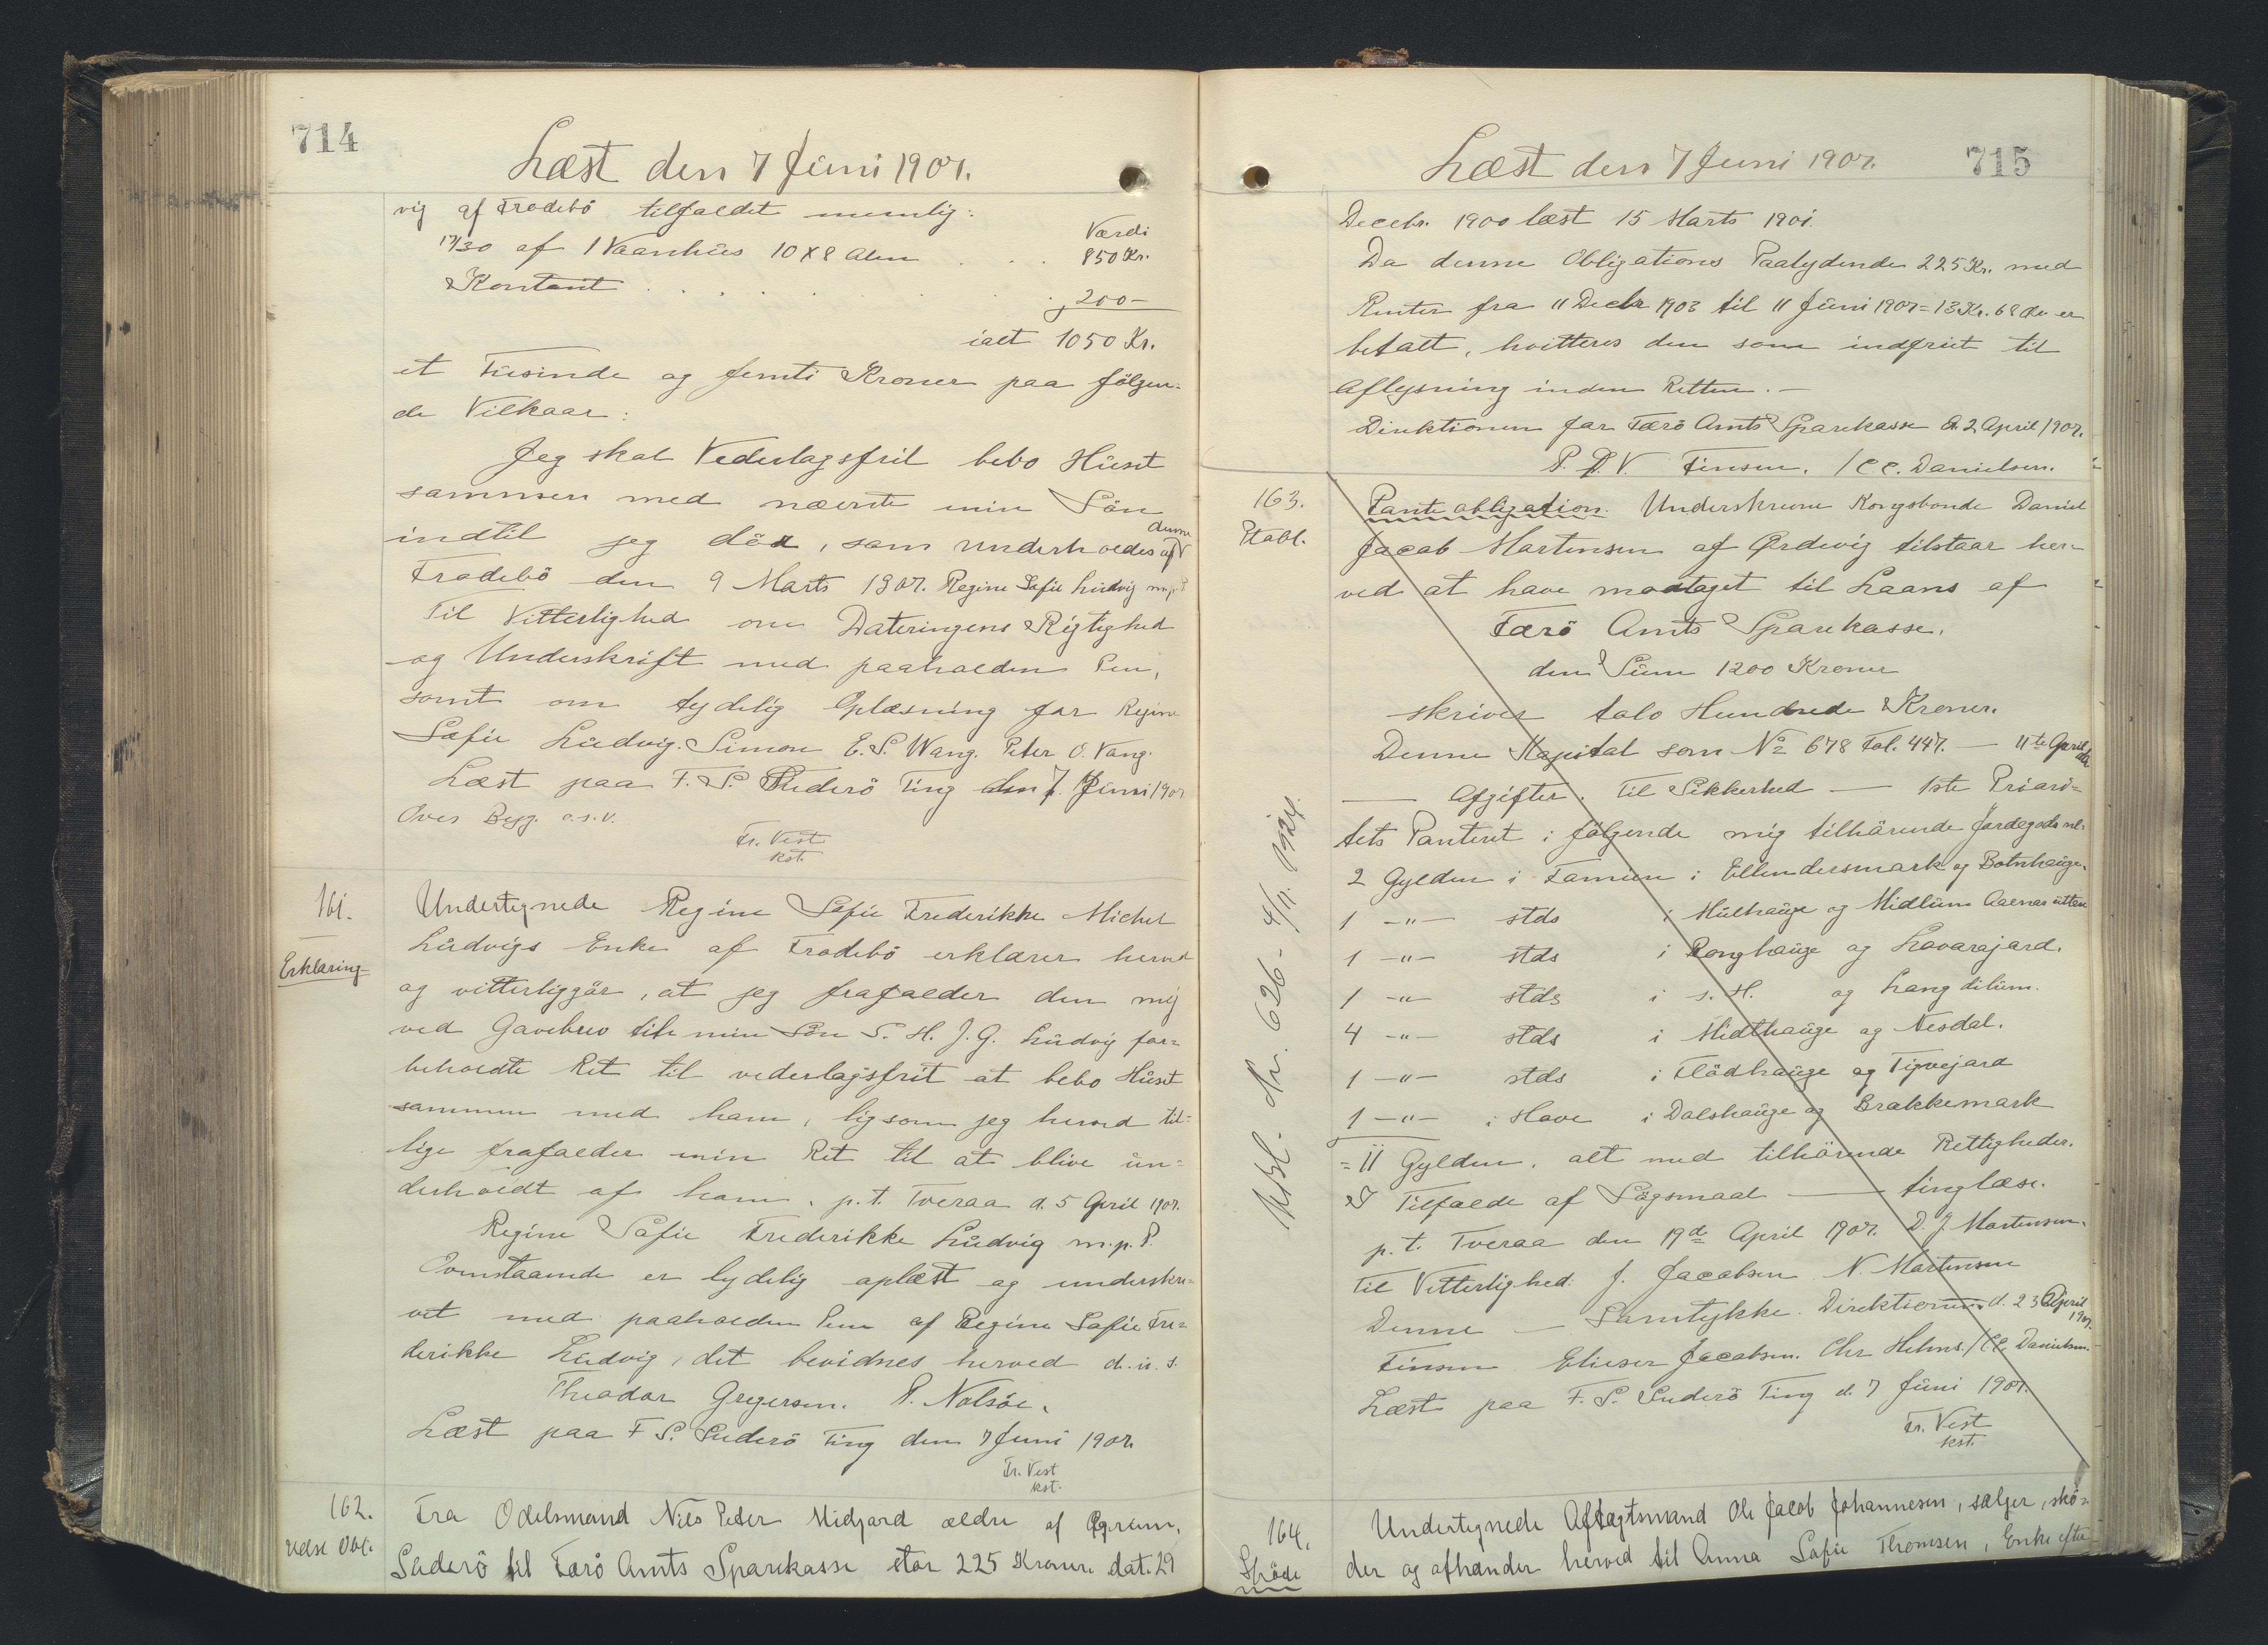 714
Læst den 7 Juni 1907.
vig af Frodebö tilfaldet nemlig:
Værdi
17/30 af 1 Vaanhus 10 x 8 Alen . . . 850 Kr.
Kontant . . . . . . . 200 -
ialt 1050 Kr.
et Tusinde og femti Kroner paa fölgen-
de Vilkaar:
Jeg skal Vederlagsfrit bebo Huset
sammen med nævnte min Sön
indtil jeg dör, som underholdes af denne
Frodebö den 9 Marts 1907. Regine Sofie Ludvig m.p.P
Til Vitterlighed om Dateringens Rigtighed
og Underskrift med paaholden Pen,
samt om tydelig Oplæsning for Regine
Sofie Ludvig. Simon E. S. Wang. Peter O. Vang.
Læst paa F. S. Suderö Ting den 7. Juni 1907
Over Byg. o.s.v.
Fr. Vest
kst.
161.
Erklæring
Undertegnede Regine Sofie Frederikke Michel
Ludvigs Enke af Frodebö erklærer herved
og vitterliggör, at jeg frafalder den mig
ved Gavebrev til min Sön S. H. J. G. Ludvig for-
beholdte Ret til vederlagsfrit at bebo Huset
sammen med ham, ligsom jeg herved til-
lige frafalder min Ret til at blive un-
derholdt af ham. p.t. Tveraa d. 5 April 1907.
Regine Sofie Frederikke Ludvig m.p.P.
Ovenstaaende er lydelig oplæst og underskre-
vet med paaholden Pen af Regine Sofie Fre-
derikke Ludvig, det bevidnes herved d.u.s.
Theodor Gregersen. P. Nolsöe.
Læst paa F S. Suderö Ting den 7 Juni 1907.
Fr. Vest
kst.
162.
Fra Odelsmand Nils Peter Midjord ældre af
Suderö til Færö Amts Sparekasse stor 225 Kroner dat. 29
715
Læst den 7 Juni 1907.
Decebr. 1900 læst 15 Marts 1901.
Da denne Obligations Paalydende 225 Kr. med
Renter fra 11 Decbr 1903 til 11 Juni 1907 = 13 Kr. 68 Øre er
betalt, kvitteres den som indfriet til
Aflysning inden Retten. -
Direktionen for Færö Amts Sparekasse d. 2 April 1907.
P. D. V. Finsen. / C C. Danielsen.
163.
Ptobl.
Panteobligation. Underskrevne Kongsbonde Daniel
Jacob Mortensen af Ørdevig tilstaar her-
ved at have modtaget til Laans af
Færö Amts Sparekasse.
den Sum 1200 Kroner
skriver tolv Hundrede Kroner.
Denne Kapital som No 678 Fol. 447. — 11te April
— Afgifter. Til Sikkerhed — 1ste Priori-
tets Panteret i fölgende mig tilhörende Jordegods nl.
2 Gylden i Famien i Ellendersmark og Botnhauge.
1 -"- stds i Mülhauge og Midlum Aaenar utten
1 -"- stds i Ronghauge og Lavarajard.
1 -"- stds i s. H. og Lang dilium.
4 -"- stds i Midthauge og Nesdal.
1 -"- stds i Flödhauge og Tigvejard
1 -"- i Hove i Dalshauge og Brakkemark
= 11 Gylden, alt med tilhörende Rettigheder.
I Tilfælde af Sögsmaal — tinglæse.
p.t. Tveraa den 19de April 1907. D. J. Mortensen.
Til Vitterlighed: J. Jacobsen N. Mortensen
Denne — Samtykke. Direktionen d. 23 April 1907.
Finsen Elieser Jacobsen. Chr Helms. / CC. Danielsen.
Læst paa F. S. Suderö Ting d. 7 Juni 1907.
Fr. Vest
kst.
Nr. 626 - 4/11. 1924.
164.
Sköde
Undertegnede Aftægtsmand Ole Jacob Johannesen, sælger, skö-
der og afhænder herved til Anna Sofie Thomsen, Enke efter